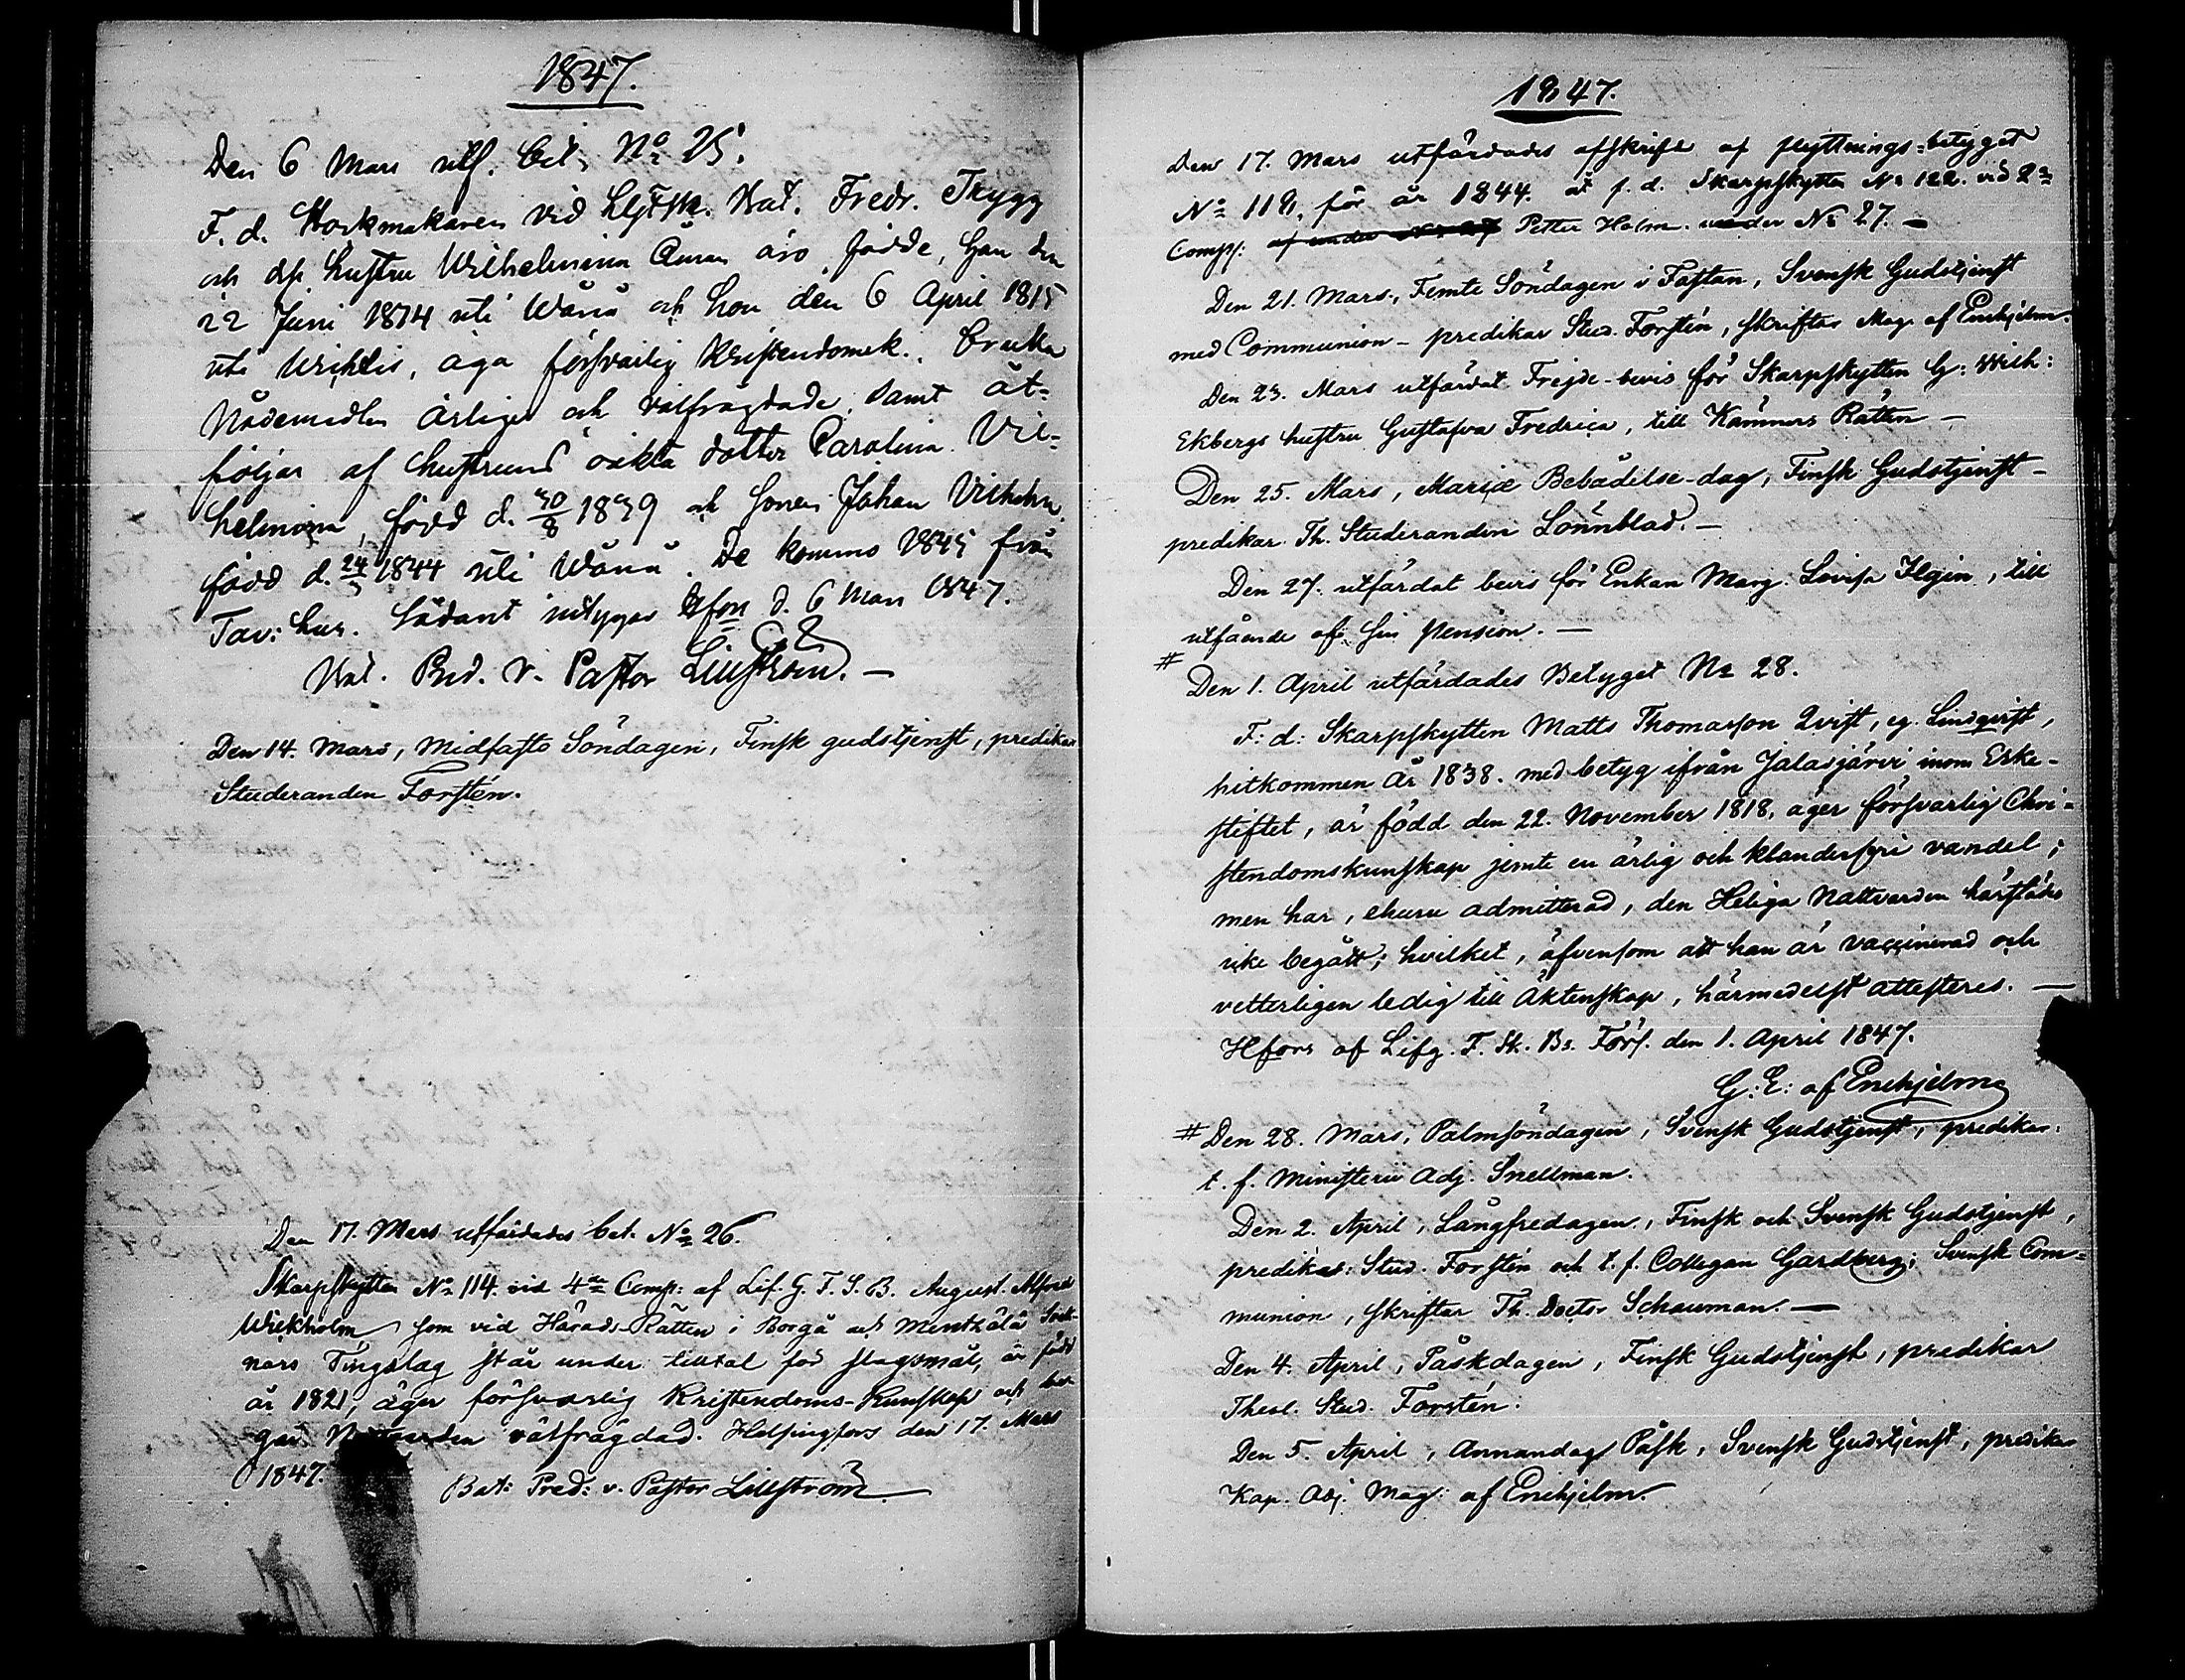 1847.
Den 6 Mars utf. bet. No 25.
F. d. Stockmakaren vid LgFSk. Bat. Fredr. Trygg
och dess hustru Wilhelmina äro födde, han den
22 Juni 1814 uti Wånå och hon den 6 April 1815
uti Urichtis, äga försvarlig Kristendomsk., bruka
Nådemedlen årligen och välfrägdade, samt åt-
följas af hustruns oäkta dotter Carolina Vil-
helmina, född d. 30/8 1839 och sonen Johan Vilhelm
född d. 24/3 1844 uti Wånå. De kommo 1845 från
Tav: hus. Sådant intygar Hfors d. 6 Mars 1847.
Bat. Pred. v. Pastor Lillström. —
Den 14. Mars, Midfasto Söndagen, Finsk gudstjenst, predikar
Studeranden Forstén.
Den 17. Mars utfärdades bet. No 26.
Skarpskytten No 114 vid 4de Comp: af Lif. G. F. S. B. August Alfred
Wickholm som vid Härads-Rätten i Borgå och Mentzälä Sock-
nars Tingslag står under tilltal för slagsmål, är född
år 1821, äger försvarlig Kristendoms-Kunskap och be-
går Nattvarden välfrägdad. Helsingfors den 17. Mars
1847.
Bat: Pred: v. Pastor Lillström
1847.
Den 17. Mars utfärdades afskrift af flyttnings-betyget
No 118, för år 1844. åt f. d. Skarpskytten No 122. vid 2a
Comp: af under No 27 Petter Holm. under No 27. —
Den 21. Mars, Femte Söndagen i Fastan, Svensk Gudstjenst
med Communion - predikar Stud. Forstén, skriftar Mag. af Enehjelm.
Den 23. Mars utfärdat Frejde-bevis för Skarpskytten G: Wilh:
Ekbergs hustru Gustafva Fredrica, till Kämners Rätten —
Den 25. Mars, Mariæ Bebådelse-dag, Finsk Gudstjenst —
predikar Th. Studeranden Lönnblad. —
Den 27. utfärdat bevis för Enkan Marg. Lovisa Ilgin, till
utfående af sin pension. —
# Den 1. April utfärdades Betyget No 28.
F: d: Skarpskytten Matts Thomasson Qvist, eg. Lindqvist,
hitkommen År 1838. med betyg ifrån Jalasjärvi inom Erke-
stiftet, är född den 22. November 1818, äger försvarlig Chri-
stendomskunskap jemte en ärlig och klanderfri vandel;
men har, ehuru admitterad, den Heliga Nattvarden härstädes
icke begått; hvilket, äfvensom att han är vaccinerad och
vetterligen ledig till Äktenskap, härmedelst attesteres. —
Hfors af Lifg. F. Sk. Bs. Förs. den 1. April 1847.
G: E: af Enehjelm
# Den 28. Mars, Palmsöndagen, Svensk Gudstjenst, predikar:
t. f. Ministerii Adj. Snellman.
Den 2. April, Långfredagen, Finsk och Svensk Gudstjenst,
predikar: Stud. Forstén och t. f. Collegan Gardberg; Svensk Com-
munion, skriftar Th. Doctor Schauman. —
Den 4. April, Påskdagen, Finsk Gudstjenst, predikar
Theol. Stud. Forstén.
Den 5. April, Annandag Påsk, Svensk Gudstjenst, predikar
Kap. Adj. Mag: af Enehjelm.